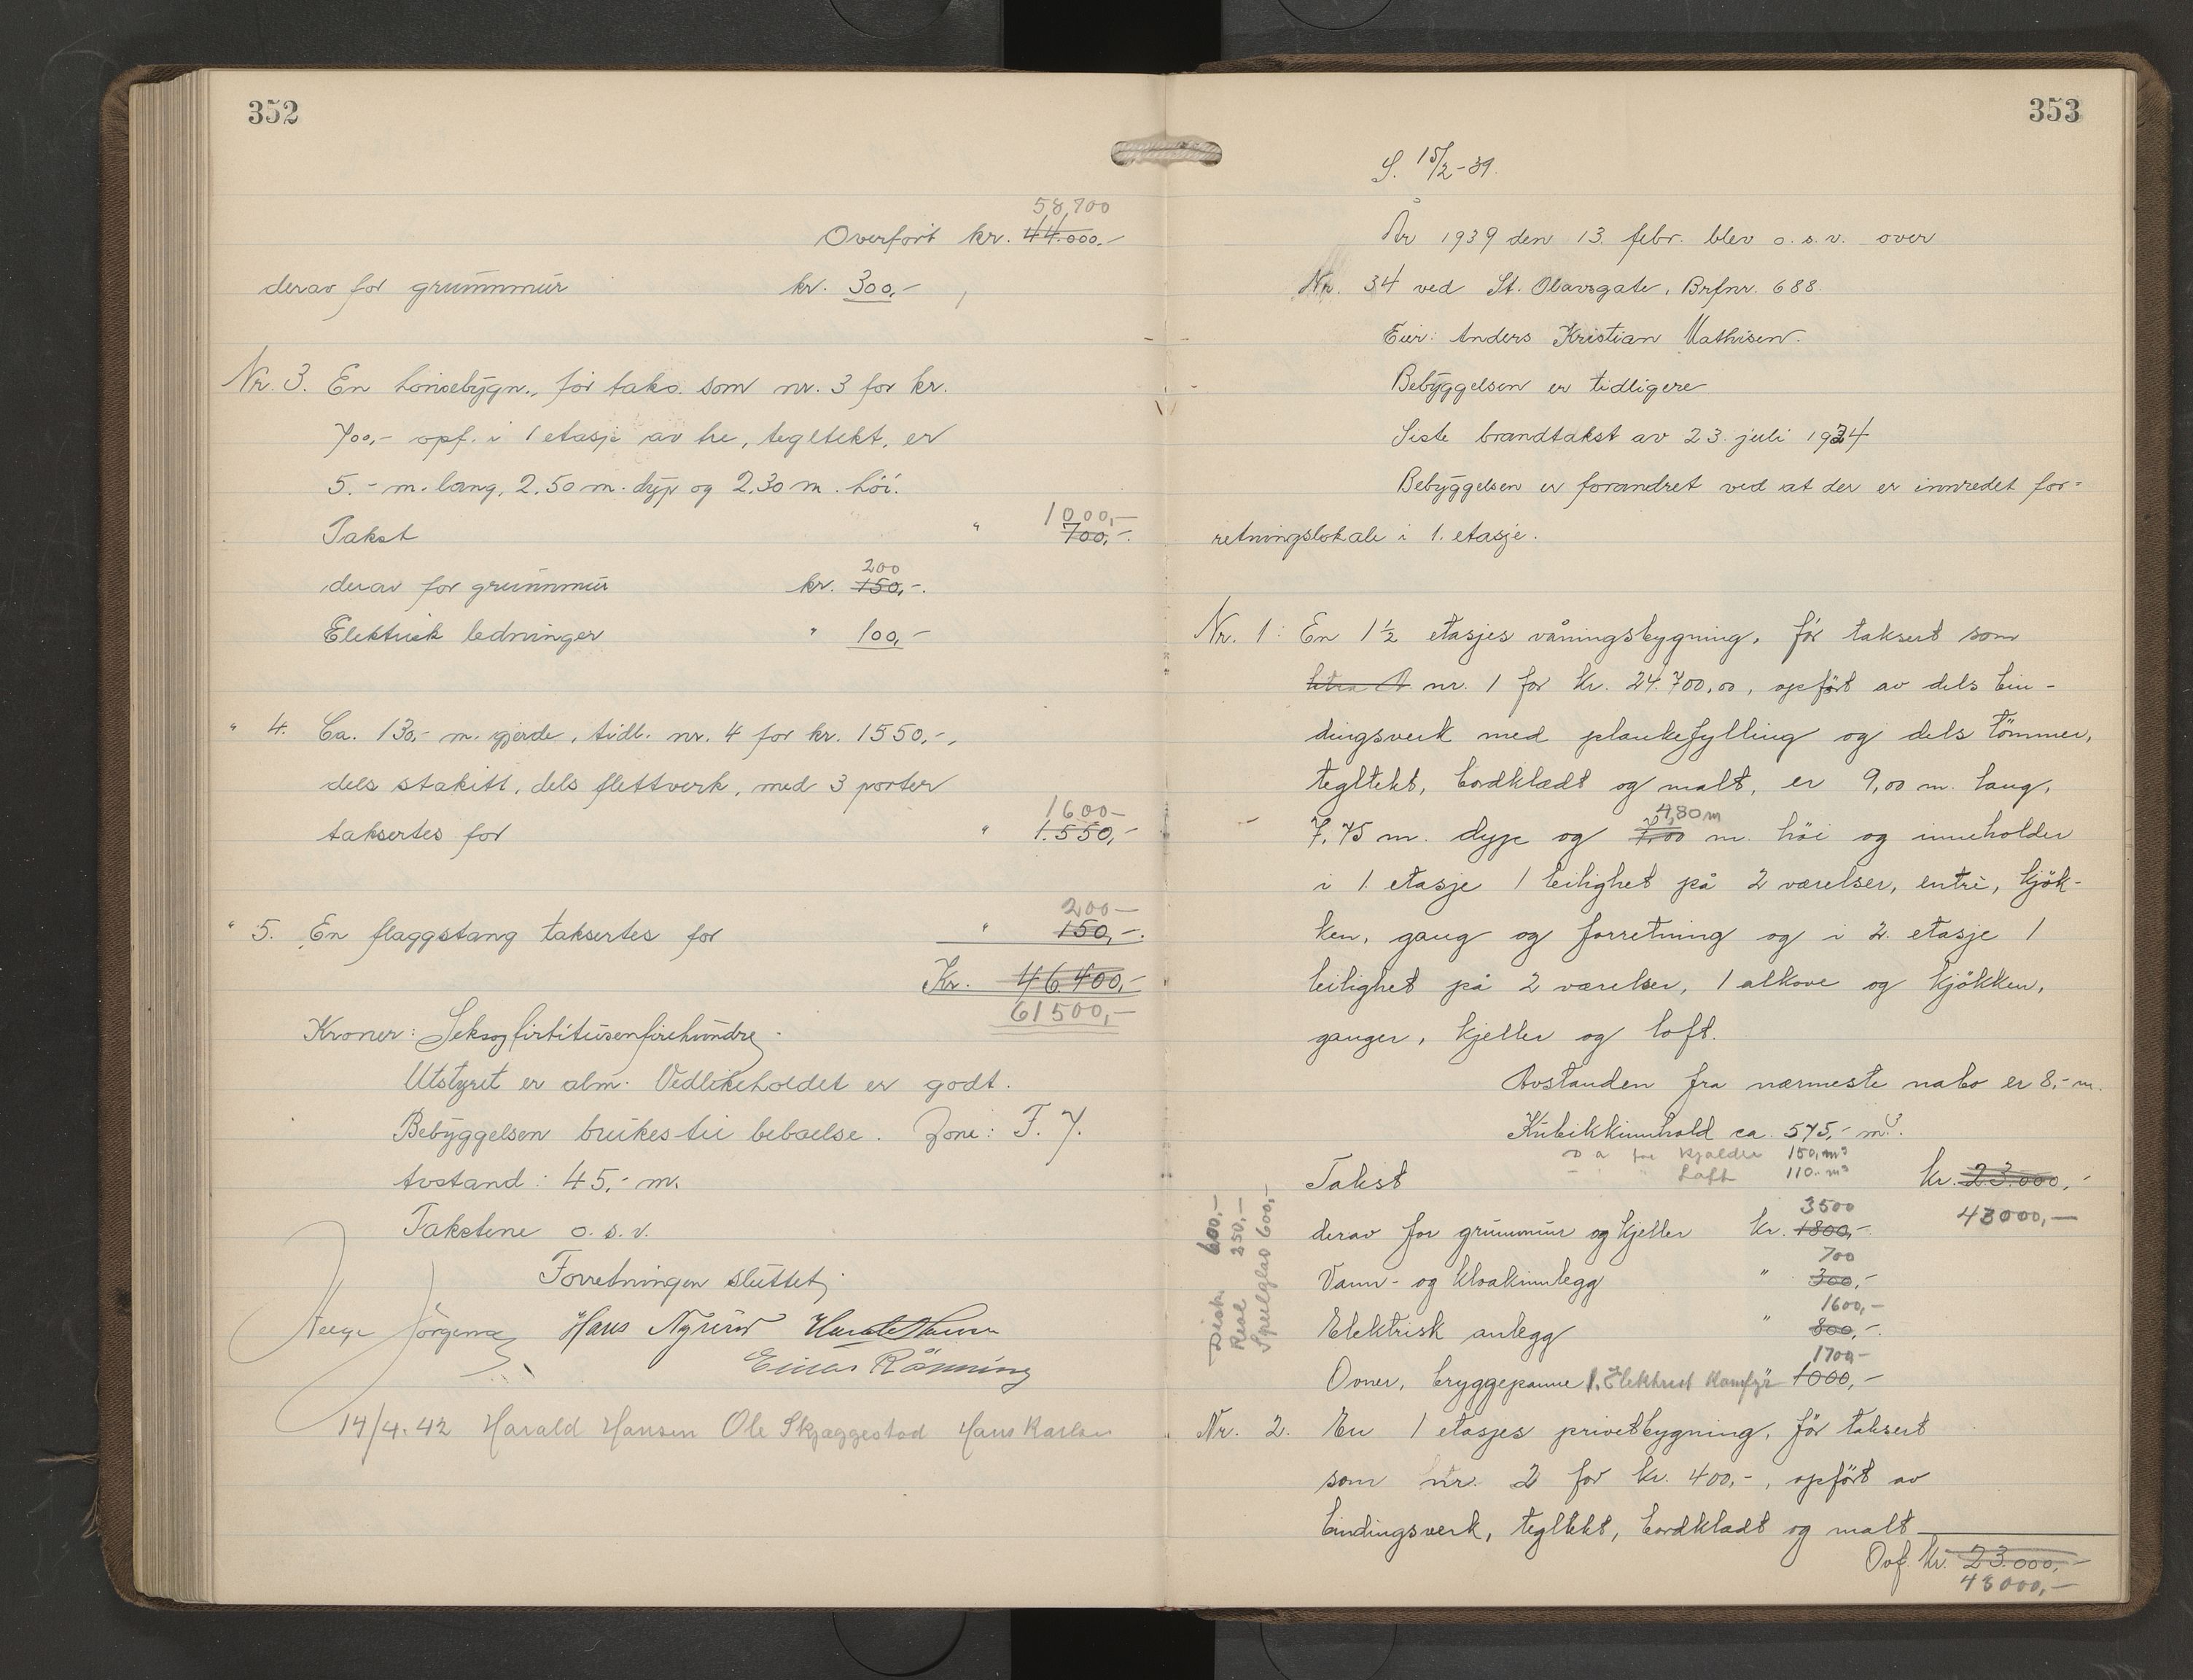 352
58,700
Overført kr. 44.000,-
derav for grunnmur kr. 300,-
Nr. 3. En hønsebygn., før taks. som nr. 3 for kr.
700,- opf. i 1 etasje av tre, tegltekt, er
5.- m. lang, 2.50 m. dyp og 2.30 m. høi.
1000,-
Takst " 700,-.
200
derav for grunnmur kr. 150,-.
Elektrisk ledninger " 100,-
" 4. Ca. 130,- m. gjerde, tidl. nr. 4 for kr. 1550,-,
dels stakitt, dels flettverk, med 3 porter
1600-
taksertes for " 1.550,-
200-
" 5. En flaggstang taksertes for " 150,-.
Kr. 46.400,-
61500,-
Kroner: Seksogfirtitusenfirehundre.
Utstyret er alm. Vedlikeholdet er godt.
Bebyggelsen brukes til beboelse. Zone: F. 7.
Avstand: 45,- m.
Takstene o. s. v.
Forretningen sluttet;
Hans Nyrud Harald Hansen
Einar Rönning
14/4.42 Harald Hansen Ole Skjæggestad Hans Karlsen
353
S. 15/2-39.
År 1939 den 13. febr. blev o. s. v. over
Nr. 34 ved St. Olavsgate, Brfnr. 688.
Eier: Anders Kristian Mathisen.
Bebyggelsen er tidligere
Siste brandtakst av 23. juli 1934
Bebyggelsen er forandret ved at der er innredet for-
retningslokale i 1. etasje.
Nr. 1: En 1½ etasjes våningsbygning, før taksert som
litra A. nr. 1 for kr. 24.700,00, opført av dels bin-
dingsverk med plankefylling og dels tömmer,
tegltekt, bordklædt og malt, er 9,00 m. lang,
4,80 m
7.75 m. dyp og 7,00 m. höi og inneholder
i 1. etasje 1 leilighet på 2 værelser, entré, kjök-
ken, gang og forretning og i 2. etasje 1
leilighet på 2 værelser, 1 alkove og kjökken,
ganger, kjeller og loft.
Avstanden fra nærmeste nabo er 8,- m.
Kubikkinnhold ca. 575,- m³.
for Kjælder 150,m³
- " " Loft 110.- m³
Takst kr. 23.000,-
3500
43000,-
derav for grunnmur og kjeller kr. 1800,-
700
Vann- og kloakinnlegg " 300,-
1600,-
Elektrisk anlegg " 800,-.
1700,-
Ovner, bryggepanne 1. Elektrist Komfyr 1000,-
Disk. 600,-
Reol 250,-
Speilglas 600,-
Nr. 2. En 1 etasjes privetbygning, før taksert
som nr. 2 for kr. 400,-, opført av
bindingsverk, tegltekt, bordklædt og malt
Ovf. kr. 23.000,-
43000,-